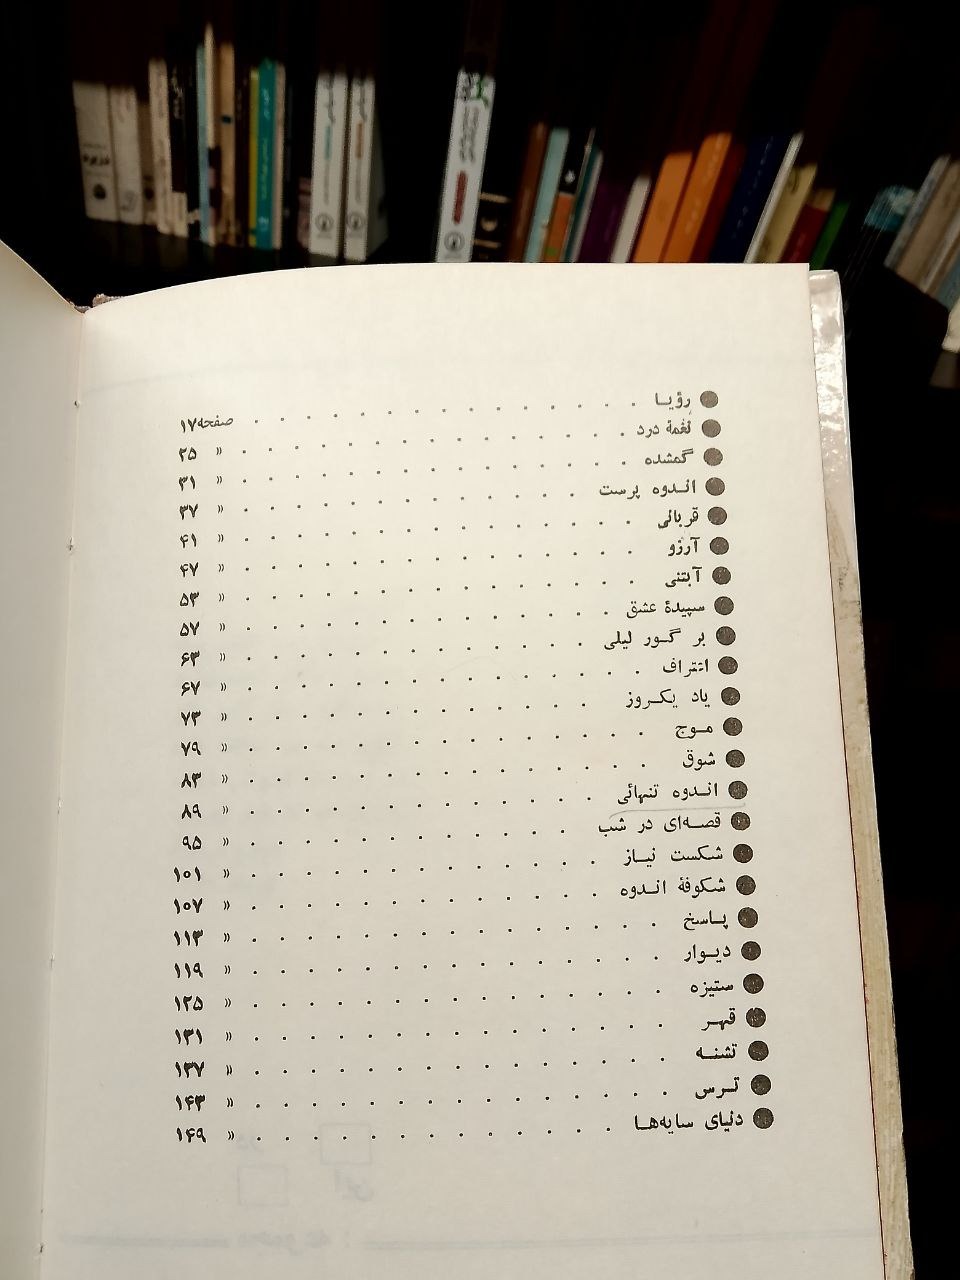 رؤیا . . . . . . . . . . . . . . . صفحه ۱۷
نغمهٔ درد . . . . . . . . . . . . . . . » ۲۵
گمشده . . . . . . . . . . . . . . . » ۳۱
اندوه پرست . . . . . . . . . . . . . » ۳۷
قربانی . . . . . . . . . . . . . . . » ۴۱
آرزو . . . . . . . . . . . . . . . » ۴۷
آبتنی . . . . . . . . . . . . . . . » ۵۳
سپیدهٔ عشق . . . . . . . . . . . . . . » ۵۷
بر گور لیلی . . . . . . . . . . . . . » ۶۳
اعتراف . . . . . . . . . . . . . . . » ۶۷
یاد یکروز . . . . . . . . . . . . . » ۷۳
موج . . . . . . . . . . . . . . . » ۷۹
شوق . . . . . . . . . . . . . . . » ۸۳
اندوه تنهائی . . . . . . . . . . . . . » ۸۹
قصه‌ای در شب . . . . . . . . . . . . » ۹۵
شکست نیاز . . . . . . . . . . . . . » ۱۰۱
شکوفهٔ اندوه . . . . . . . . . . . . . » ۱۰۷
پاسخ . . . . . . . . . . . . . . . » ۱۱۳
دیوار . . . . . . . . . . . . . . . » ۱۱۹
ستیزه . . . . . . . . . . . . . . . » ۱۲۵
قهر . . . . . . . . . . . . . . . » ۱۳۱
تشنه . . . . . . . . . . . . . . . » ۱۳۷
ترس . . . . . . . . . . . . . . . » ۱۴۳
دنیای سایه‌ها . . . . . . . . . . . . . » ۱۴۹